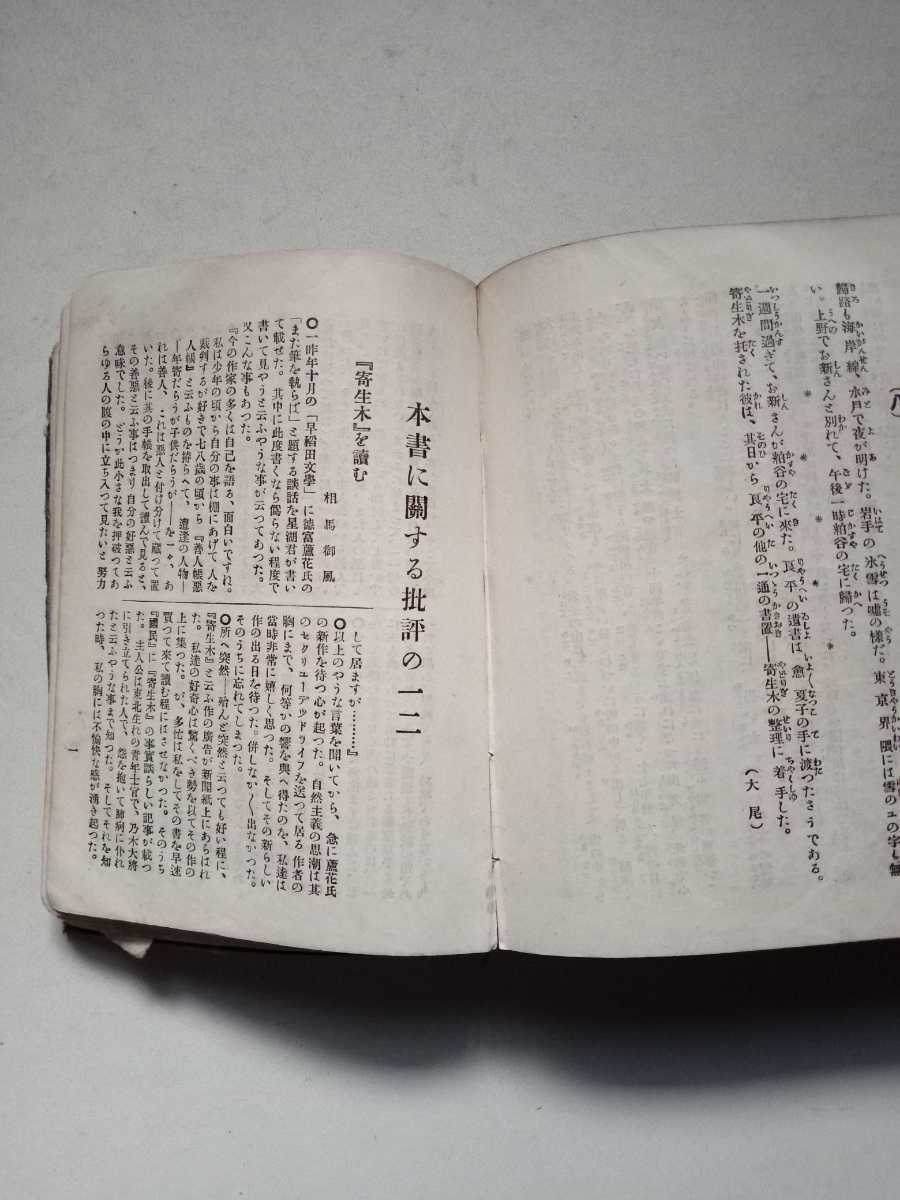 (八
歸路も海岸線、水戸で夜が明けた。岩手の氷雪は嘘の樣だ。東京界隈には雪のユの字も無
い。上野でお新さんと別れて、午後一時粕谷の宅に歸つた。
* * * *
一週間過ぎて、お新さんが粕谷の宅に來た。良平の遺書は愈夏子の手に渡つたさうである。
寄生木を托された彼は、其日から良平の他の一通の書置――寄生木の整理に着手した。
(大尾)
本書に關する批評の一二
『寄生木』を讀む
相馬御風
〇一昨年十月の「早稻田文學」に德富蘆花氏の
「また筆を執らば」と題する談話を星湖君が書い
て載せた。其中に此度書くなら僞らない程度で
書いて見やうと云ふやうな事が云つてあつた。
又こんな事もあつた。
『今の作家の多くは自己を語る、面白いですね。
私は少年の頃から自分の事は棚にあげて人を
裁判するが好きで七八歲の頃から『善人帳惡
人帳』と云ふものを拵らへて、遭逢の人物―
―年寄だらうが子供だらうが――を一々、あ
れは善人、これは惡人と付け分けて藏つて置
いた。後に其の手帳を取出して讀んで見ると、
その善惡と云ふ事はつまり自分の好惡と云ふ
意味でした。どうか此小さな我を押破つてあ
らゆる人の腹の中に立ち入つて見たいと努力
して居ますが………』
〇以上のやうな言葉を聞いてから、急に蘆花氏
の新作を待つ心が起つた。自然主義の思潮は其
のセクリューデッドライフを送つて居る作者の
胸にまで、何等かの響を與へ得たのを、私達は
當時非常に嬉しく思つた。そしてその新らしい
作の出る日を待つた。併しなか〳〵出なかつた。
そのうちに忘れてしまつた。
〇所へ突然――殆んど突然と云つても好い程に、
『寄生木』と云ふ作の廣告が新聞紙上にあらはれ
た。私達の好奇心は驚くべき勢を以てその作の
上に集つた。が、多忙は私をしてその書を早速
買つて來て讀む程にはさせなかつた。そのうち
『國民』に『寄生木』の事實談らしい記事が載つ
た。主人公は東北生れの靑年士官で、乃木大將
に引き立てられた人で、怨を抱いて肺病に仆れ
たと云ふやうな事まで知つた。そしてそれを知
つた時、私の胸には不愉快な感が湧き起つた。
一